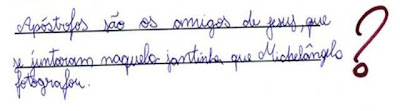 Apóstrofos são os amigos de jesus, que
se juntaram naquela jantinha que Michelângelo
fotografou.
?